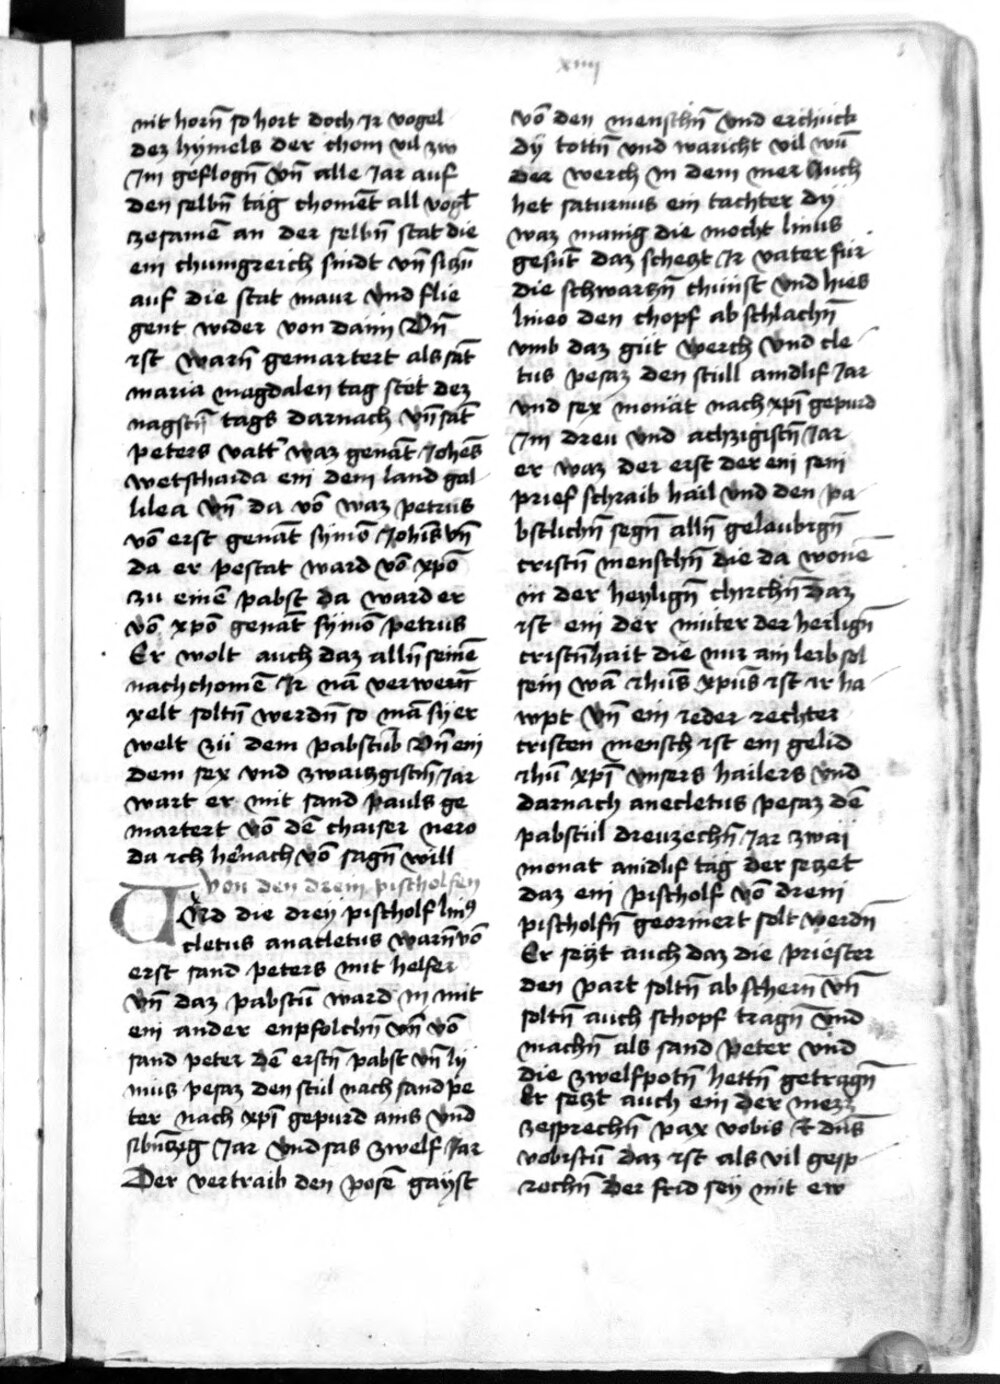 xiiij
nit horñ so hort doch Ir vogel
dez hymels der chom vil zw
Im geflogñ vñ alle Jar auf
den selbñ tag chomēt all vogl
zesamē an der selbñ stat die
ein chunigreich sindt vñ siczn̄
auf die stat maur vnd flie
gent wider von dann Vñ
ist warñ gemartert als sāt
maria magdalen tag stet dez
nagstñ tags darnach vñ sāt
peters vatt' waz genāt Johēs
wetschaida ein dem land gal
lilea vñ da vō waz petrus
vō erst genāt symō Johīs vñ
da er pestat ward vō xpō
zu einē pabst da ward er
vō xpō genāt symō petrus
Er wolt auch daz allñ seinē
nachchomē Ir nā verwern̄
xelt soltñ werdñ so mā sy er
welt zu dem pabstūb Vñ ein
dem sex vnd zwaizgistñ Jar
wart er mit sand pauls ge
martert vō dē chaiser nero
da ich he'nach vō sagñ will
Von den drein pischolfen
Vnd die dreӱ pischolf lin9
cletus anacletus warñ vō
erst sand peters mit helfer
vñ daz pabstū ward in mit
ein ander enpfolchñ vñ vō
sand peter dē erstñ pabst vñ lӱ
nius pesaz den stul nach sand pe
ter nach xpī gepurd ains vnd
sibñczig Jar vnd sas zwelf Jar
Der vertraib den posē gayst
vō den menschñ vnd erchuck
dӱ tottñ vnd waricht vil wū
der werch in dem mer Auch
het saturnus ein tachter dӱ
waz manig die mocht linus
gesūt daz schetzt Ir vater fur
die schwarczñ chunst vnd hies
lineo den chopf ab schlachñ
vmb daz gut werch vnd cle
tus pesaz den stull aindlif Jar
vnd sex monat nach xpī gepurd
Im dreu vnd achzigistñ Jar
er waz der erst der ein sein
prief schraib hail vnd den pa
bstlichñ segñ allñ gelaubigñ
cristñ menschñ die da wonē
in der heyligñ chirchñ daz
ist ein der muter der heiligñ
cristñhait die nur ain leib sol
sein wā ihūs xpūs ist ir ha
wpt vñ ein ieder rechter
cristen mensch ist ein gelid
ihū xpī vnsers hailers vnd
darnach anecletus pesaz dē
pabstul dreuzechñ Jar zwaӱ
monat aindlif tag der seczet
daz ein pischolf vō drein
pischolfñ georinert solt werdñ
Er sezt auch daz die priester
den part soltñ ab schern̄ vñ
soltñ auch schopf tragñ vnd
machñ als sand peter vnd
die zwelfpotñ hettñ getragñ
Er sezt auch ein der mezz
zesprechñ pax vobis & dn̄s
vobiscū daz ist als vil gesp
rochñ der frid seӱ mit ew